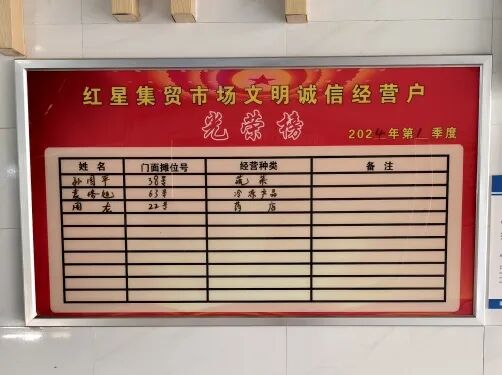 红星集贸市场文明诚信经营户
光荣榜
2024年第1季度
姓名 门面摊位号 经营种类 备注
孙国平 38号 蔬菜
63号 冷冻产品
周龙 22号 药店